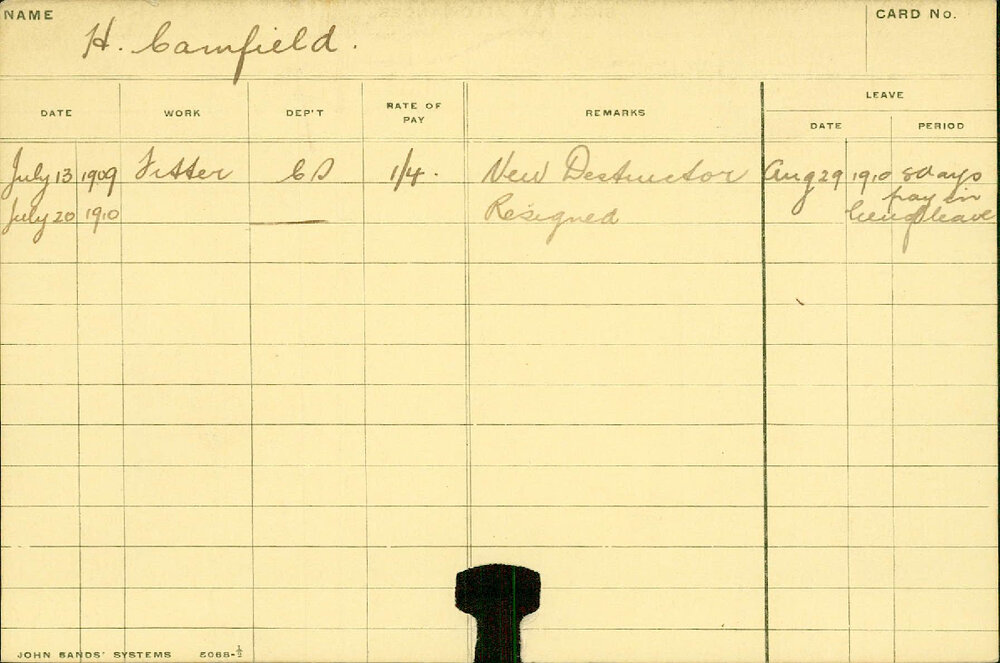 NAME H. Camfield. CARD No.
LEAVE
DATE WORK DEP'T RATE OF PAY REMARKS DATE PERIOD
July 13 1909 Fitter CS 1/4. New Destructor Aug 29 1910 8 days
pay in
July 20 1910 Resigned lieu of leave
JOHN SANDS' SYSTEMS 5068-½